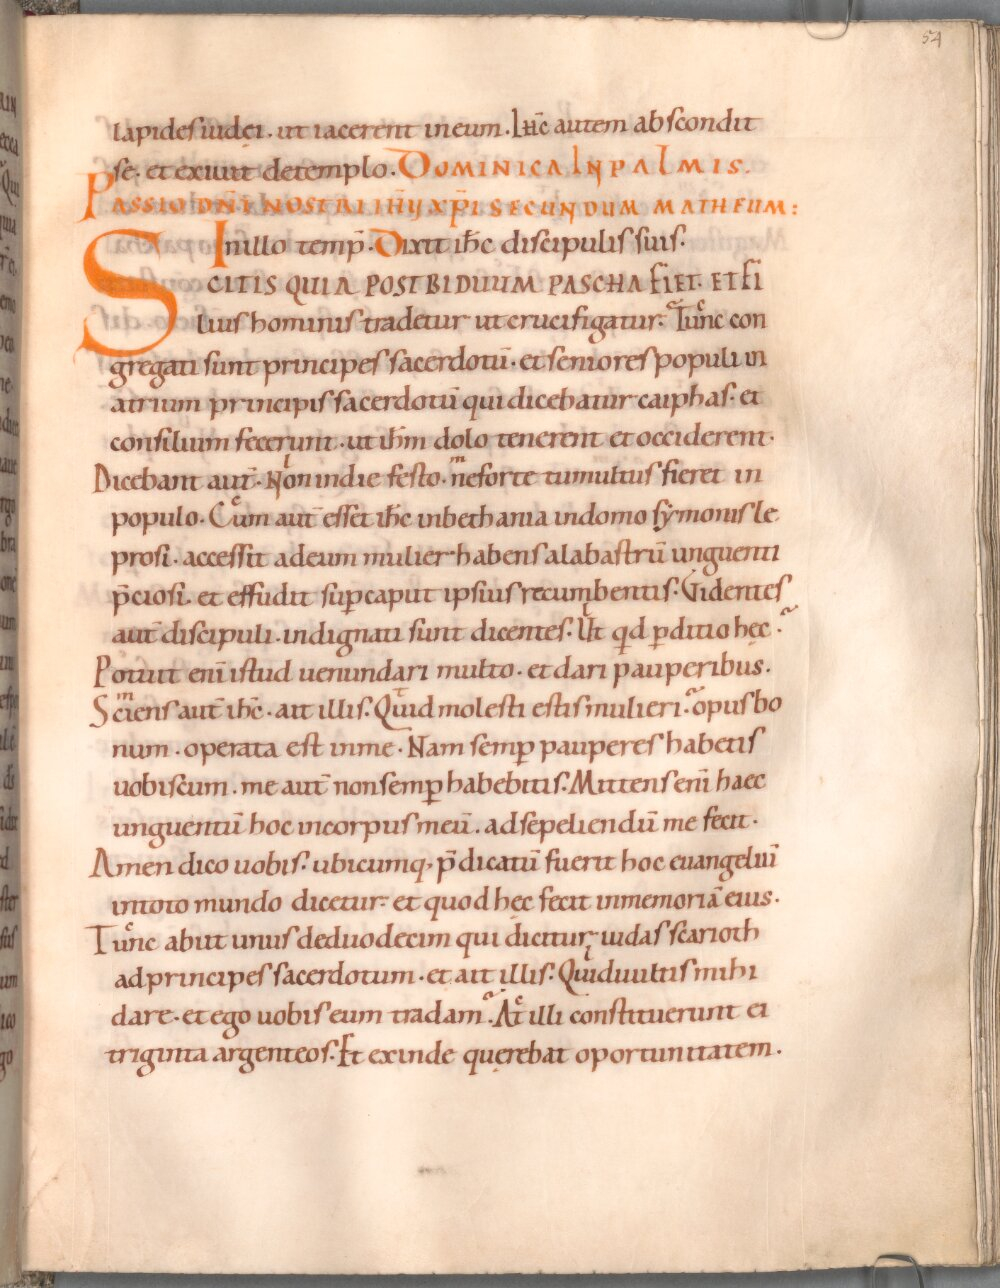 54
lapides iudęi. ut iacerent in eum. Ihc̄ autem abscondit
se. et exiuit de templo. DOMINICA IN PALMIS.
PASSIO DN̄I NOSTRI IHV̄ XP̄I SECUNDUM MATHEUM:
In illo temp̄. Dixit ihc̄ discipulis suis.
SCITIS QUIA POST BIDUUM PASCHA FIET. ET FI
lius hominis tradetur ut crucifigatur. Tunc con
gregati sunt principes sacerdotū. et seniores populi in
atrium principis sacerdotū qui dicebatur caiphas. et
consilium fecerunt. ut ihm̄ dolo tenerent et occiderent.
Dicebant aut̄. Non in die festo. ne forte tumultus fieret in
populo. Cum aut̄ esset ihc̄ in bethania in domo symonis le
prosi. accessit ad eum mulier habens alabastrū unguenti
p̄ciosi. et effudit sup̱ caput ipsius recumbentis. Videntes
aut̄ discipuli. indignati sunt dicentes. Ut qd p̱ditio hęc.
Potuit enī istud uenundari multo. et dari pauperibus.
Sciens aut̄ ihc̄. ait illis. Quid molesti estis mulieri. opus bo
num. operata est in me. Nam semp̱ pauperes habetis
uobiscum. me aut̄ non semp̱ habebitis. Mittens enī haec
unguentū hoc in corpus meū. ad sepeliendū me fecit.
Amen dico uobis. ubicumq. p̄dicatū fuerit hoc euangeliū
in toto mundo dicetur et quod hęc fecit in memoriā eius.
Tunc abiit unus de duodecim qui dicitur iudas scarioth
ad principes sacerdotum. et ait illis. Quid uultis mihi
dare. et ego uobis eum tradam. At illi constituerunt ei
triginta argenteos. Et exinde querebat oportunitatem.